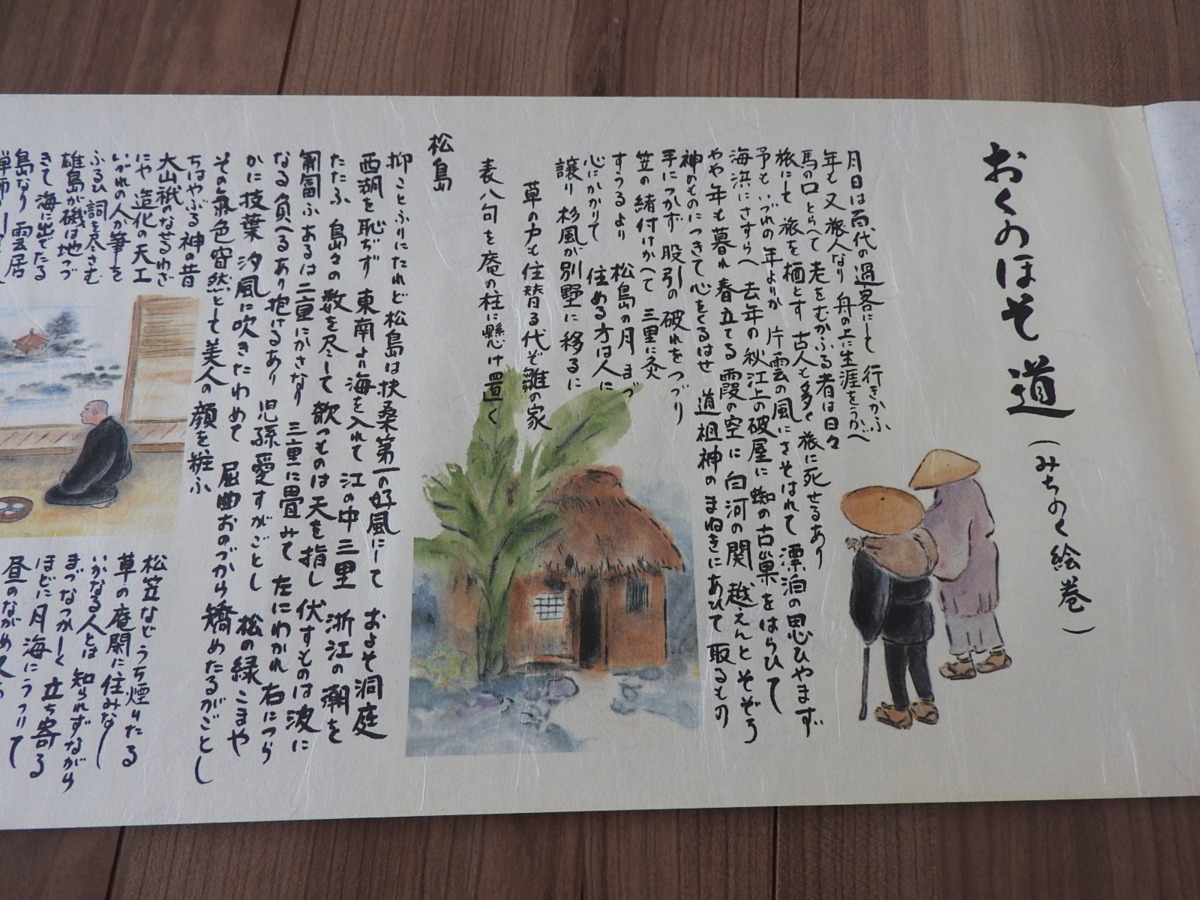 おくのほそ道(みちのく絵巻)
月日は百代の過客にして 行きかふ
年も又 旅人なり 舟の上に生涯をうかべ
馬の口とらへて 老をむかふる者は日々
旅にして 旅を栖とす 古人も多く 旅に死せるあり
予も いづれの年よりか 片雲の風にさそはれて 漂泊の思ひやまず
海浜にさすらへ 去年の秋江上の破屋に 蜘の古巣をはらひて
やや年も暮れ 春立てる霞の空に 白河の関 越えんとそぞろ
神のものにつきて 心をくるはせ 道祖神のまねきにあひて 取るもの
手につかず 股引の破れをつづり
笠の緒付けかへて 三里に灸
すうるより 松島の月 まづ
心にかかりて 住める方は人に
譲り 杉風が別墅に移るに
草の戸も 住替る代ぞ 雛の家
表八句を 庵の柱に懸け置く
松島
抑 ことふりにたれど 松島は扶桑第一の好風にして およそ洞庭
西湖を恥ぢず 東南より海を入れて 江の中三里 浙江の潮を
たたふ 島々の数を尽して 欹つものは天を指し 伏すものは波に
匍匐ふ あるは二重にかさなり 三重に畳みて 左にわかれ 右につら
なる 負へるあり 抱けるあり 児孫愛すがごとし 松の緑こまや
かに 枝葉 汐風に吹きたわめて 屈曲おのづから矯めたるがごとし
その気色 窅然として 美人の顔を粧ふ
ちはやぶる 神の昔
大山祇のなせるわざ
にや 造化の天工
いづれの人か筆を
ふるひ 詞を尽さむ
雄島が磯は地つづ
きて 海に出でたる
島なり 雲居
禅師
松笠など うち煙りたる
草の庵 閑に住みなし
いかなる人とは 知られずながら
まづなつかしく 立ち寄る
ほどに 月 海にうつりて
昼のながめ 又